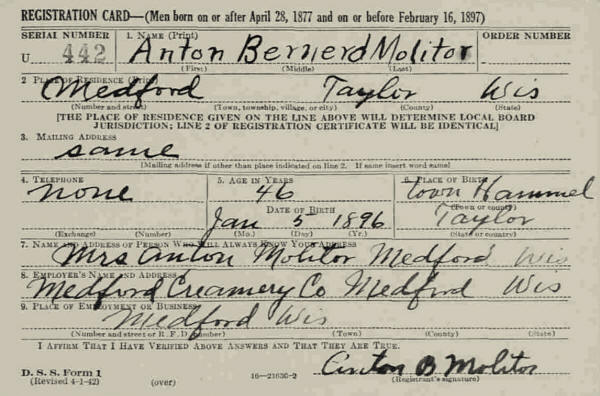 REGISTRATION CARD—(Men born on or after April 28, 1877 and on or before February 16, 1897)
SERIAL NUMBER 1. NAME (Print) ORDER NUMBER
U 442 Anton Bernerd Molitor
(First) (Middle) (Last)
2. PLACE OF RESIDENCE (Print)
Medford Taylor Wis
(Number and street) (Town, township, village, or city) (County) (State)
[THE PLACE OF RESIDENCE GIVEN ON THE LINE ABOVE WILL DETERMINE LOCAL BOARD
JURISDICTION; LINE 2 OF REGISTRATION CERTIFICATE WILL BE IDENTICAL]
3. MAILING ADDRESS
same
[Mailing address if other than place indicated on line 2. If same insert word same]
4. TELEPHONE 5. AGE IN YEARS 6. PLACE OF BIRTH
none 46 Town Hammel
DATE OF BIRTH (Town or county)
Jan 5 1896 Taylor
(Exchange) (Number) (Mo.) (Day) (Yr.) (State or country)
7. NAME AND ADDRESS OF PERSON WHO WILL ALWAYS KNOW YOUR ADDRESS
Mrs Anton Molitor Medford Wis
8. EMPLOYER'S NAME AND ADDRESS
Medford Creamery Co Medford Wis
9. PLACE OF EMPLOYMENT OR BUSINESS
Medford Wis
(Number and street or R. F. D. number) (Town) (County) (State)
I AFFIRM THAT I HAVE VERIFIED ABOVE ANSWERS AND THAT THEY ARE TRUE.
Anton B Molitor
D. S. S. Form 1 (Registrant's signature)
(Revised 4-1-42) (over) 16—21630-2